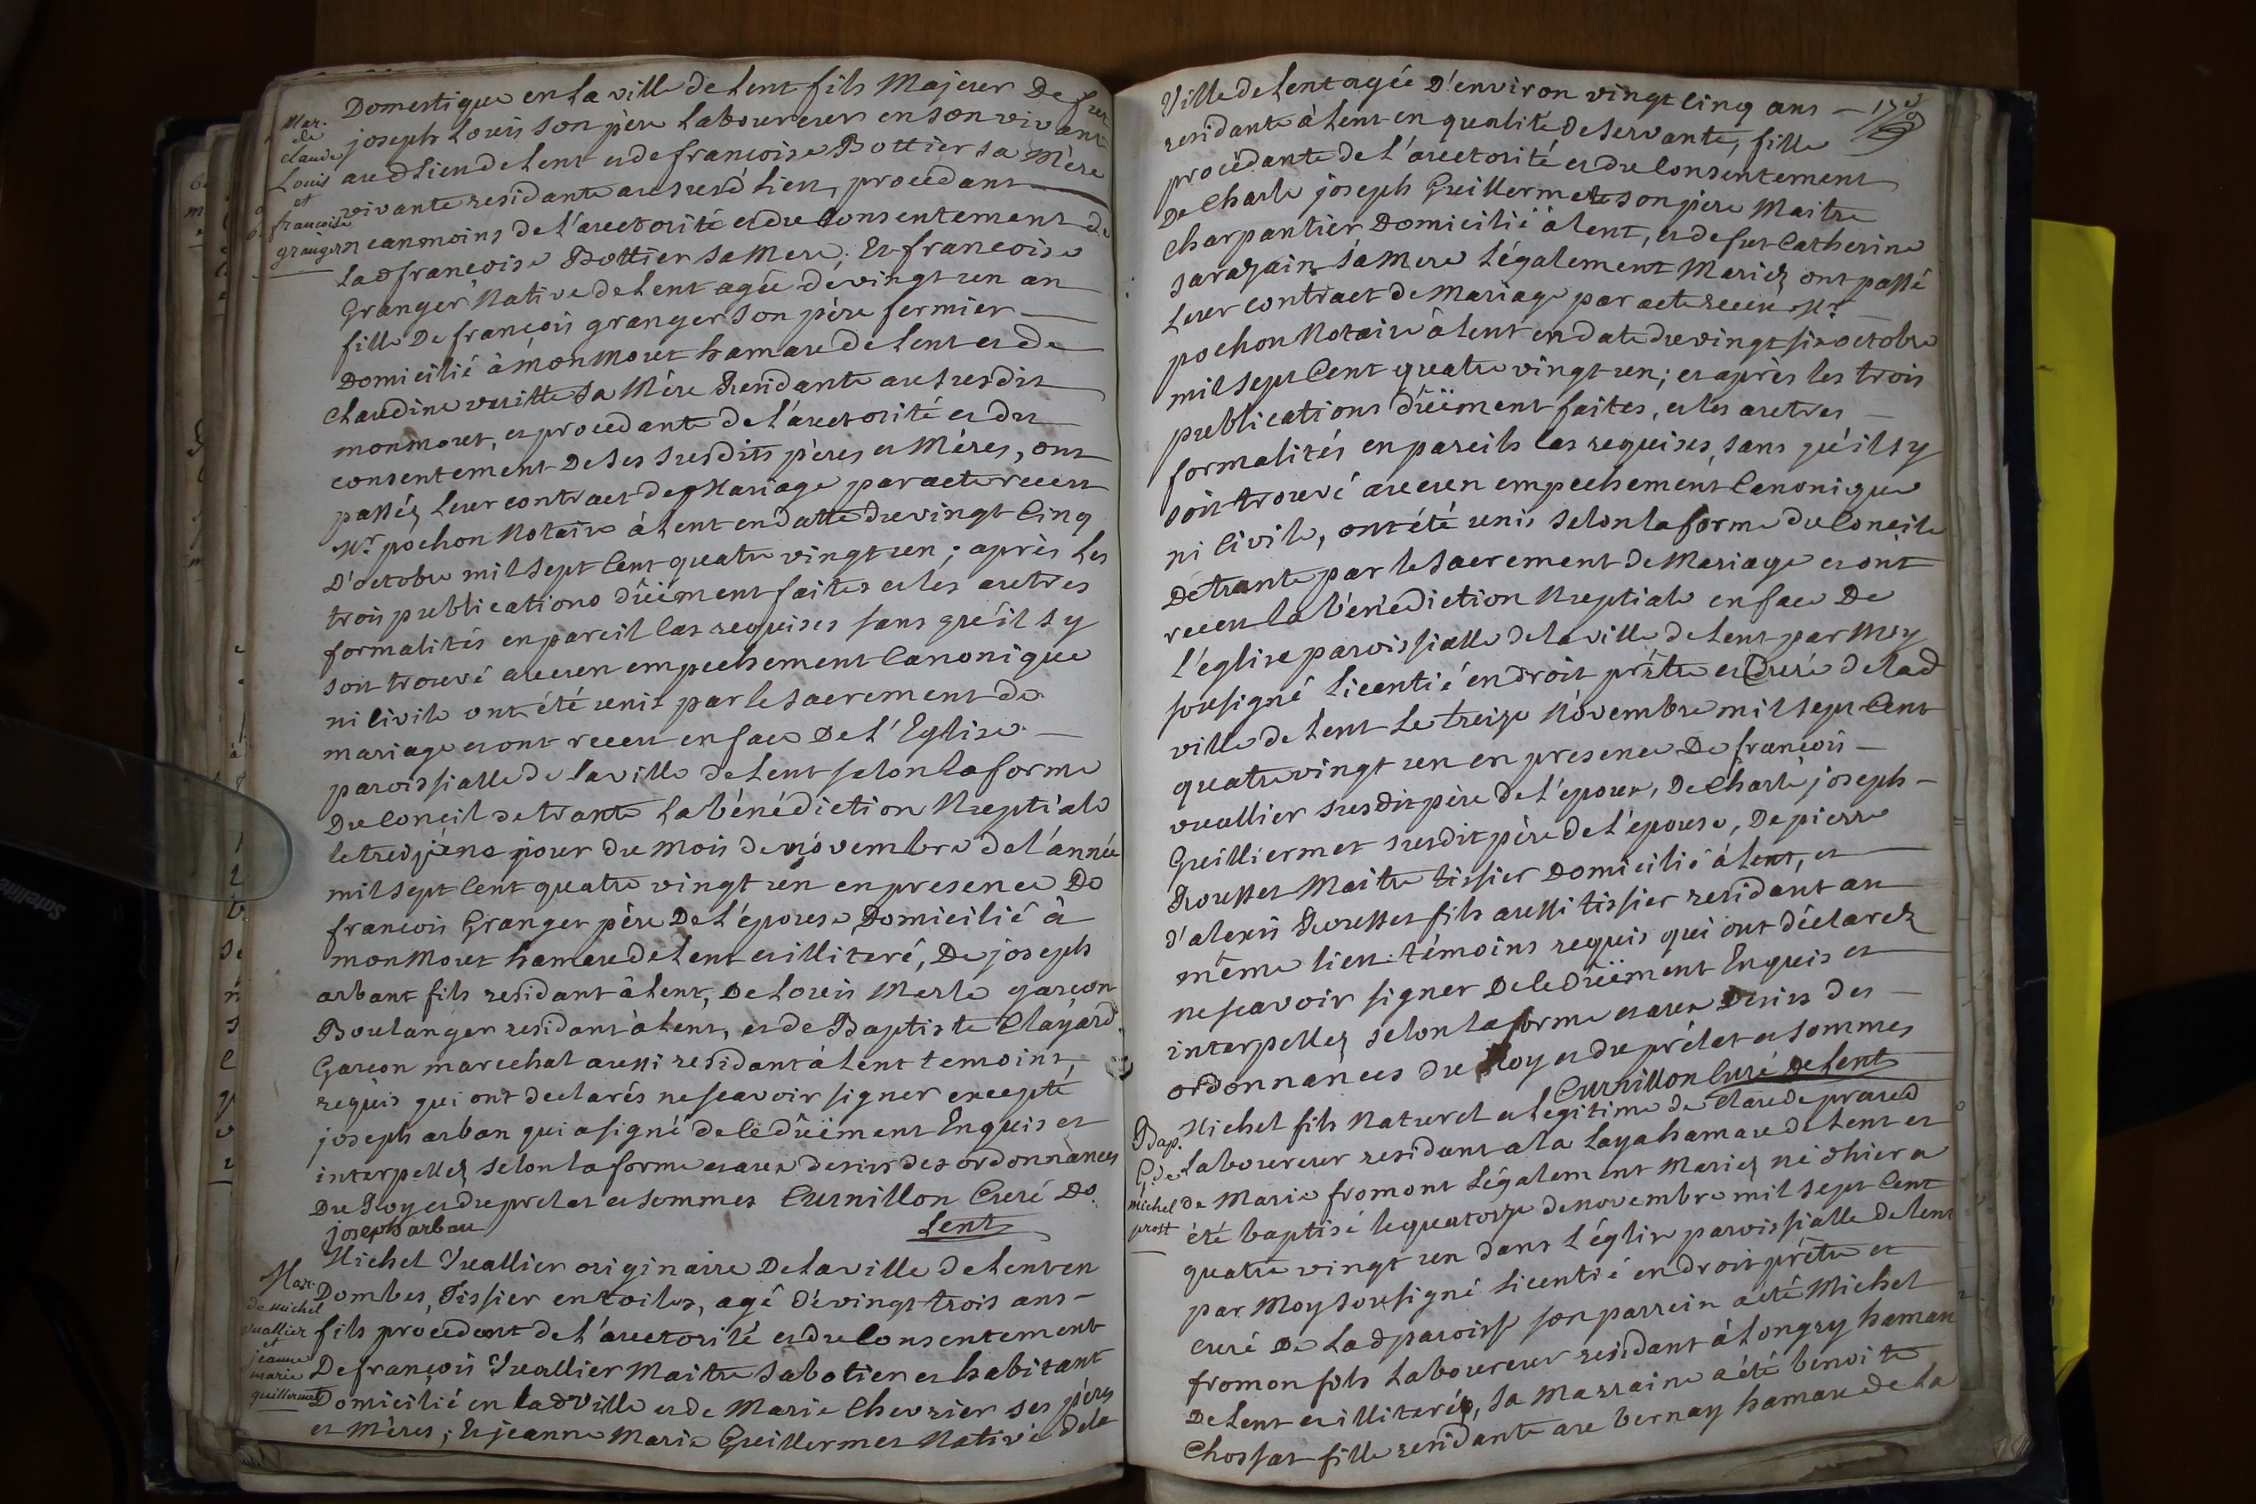 Mar.
de
claude
Louis
et
francoise
granger
Domestique en la ville de Lent fils Majeur De feu
joseph Louis son père Laboureur en son vivant
aud Lieu de Lent et de francoise Bottier sa Mère
vivante residante au susd Lieu, procedant
neanmoins de l'auctorité et du Consentement de
Lad francoise Bottier sa Mere; Et francoise
Granger Native de Lent agée de vingt un an
fille De françois granger son père fermier
Domicilié à monmout hamau de Lent et de
Claudine vuitte sa Mère Residante au susdit
monmout, et procedante de l'auctorité et du
consentement De ses susdits pères et Mères, ont
passéz Leur contract de Mariage par acte receu
Mr pochon Notaire à Lent en datte du vingt Cinq
D'octobre mil sept Cent quatre vingt un; après Les
trois publications düëment faites et les autres
formalités en pareil Cas requises sans qu'il s'y
soit trouvé aucun empechement Canonique
ni Civile ont été unis par le sacrement de
mariage et ont receu en face De L'Eglise
paroissialle de la ville de Lent selon la forme
Du Concil de trante La bénédiction Nuptiale
le treizième jour du Mois de novembre de l'année
mil sept Cent quatre vingt un en presence De
francois Granger père De L'épouse, Domicilié à
monmout hamau de Lent et illiteré, De joseph
arbant fils residant à Lent, De Louis Merle garçon
Boulanger residant à Lent, et de Baptiste Clayard
Garcon marechal aussi residant à Lent temoins,
requis qui ont declarés ne scavoir signer excepté
joseph arban qui a signé de ce düëment Enquis et
interpellez selon la forme et aux desirs des ordonnances
Du Roy et du prelat et sommes Curnillon Curé De
joseph arban Lent
Mar.
de Michel
vuallier
et
jeanne
marie
guillermet
Michel Vuallier originaire De la ville de Lent en
Dombes, Tissier en toiles, agé de vingt trois ans
fils procedent de l'auctorité et du Consentement
De françois Vuallier Maitre Sabotier et habitant
Domicilié en lad Ville et de Marie Chevrier ses pères
et Mères; Et jeanne Marie Guillermet Native de la
Ville de Lent agée D'environ vingt Cinq ans
residante à Lent en qualité de servante, fille
procedante de l'auctorité et du Consentement
De Charle joseph Guillermet son père Maitre
Charpantier Domicilié à Lent, et de feu Catherine
sarazain sa Mere Légalement Mariéz ont passé
Leur contract de Mariage par acte receu Mr
pochon Notaire à Lent en date du vingt six octobre
mil sept Cent quatre vingt un; et après les trois
publications düëment faites, et les autres
formalités en pareils Cas requises, sans qu'il s'y
soit trouvé aucun empechement Canonique
ni Civile, ont été unis selon la forme du Concile
De trante par le sacrement de Mariage et ont
receu la bénédiction Nuptiale en face De
L'église paroissialle de la ville de Lent par Moy
sousigné Licentié en droit prêtre et Curé de lad
ville de Lent Le treize Novembre mil sept Cent
quatre vingt un en presence De françois
vuallier susdit père de l'époux, De Charle joseph
Guilliermet susdit père de l'epouse, De pierre
Rousset Maitre tissier Domicilié à Lent, et
d'alexis Rousset fils aussi tissier residant au
même lieu témoins requis qui ont déclarez
ne scavoir signer De ce düëment Enquis et
interpellez selon la forme et aux Desirs des
ordonnances du Roy et du prélat et sommes
Curnillon Curé De Lent
Bap.
de
michel
prost
Michel fils Naturel et Legitime de Claude praud
Laboureur residant a la Laya hamau de Lent et
de Marie fromont Légalement Mariéz né d'hier a
été baptisé le quatorze de novembre mil sept Cent
quatre vingt un dans L'église paroissialle de Lent
par Moy Sousigné Licentié en droit prêtre et
curé De Lad paroisse son parrein a été Michel
fromon fils Laboureur residant à Longry hamau
De Lent et illiteréz, sa Marraine a été benoite
Chossat fille residante au bernay hamau de La